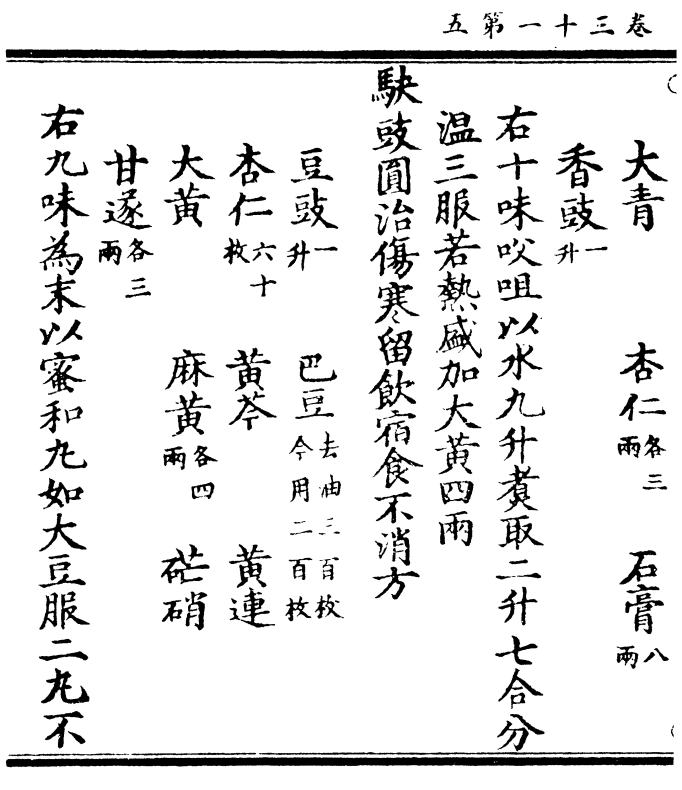 卷三十一第五
大青　杏仁各三兩　石膏八兩
香豉一升
右十味㕮咀以水九升煑取二升七合分
温三服若熱盛加大黄四兩
駃豉圓治傷寒留飲宿食不消方
豆豉一升　巴豆去油三百枚今用二百枚
杏仁六十枚　黄芩　黄連
大黄　麻黄各四兩　芒硝
甘遂各三兩
右九味為末以蜜和丸如大豆服二丸不